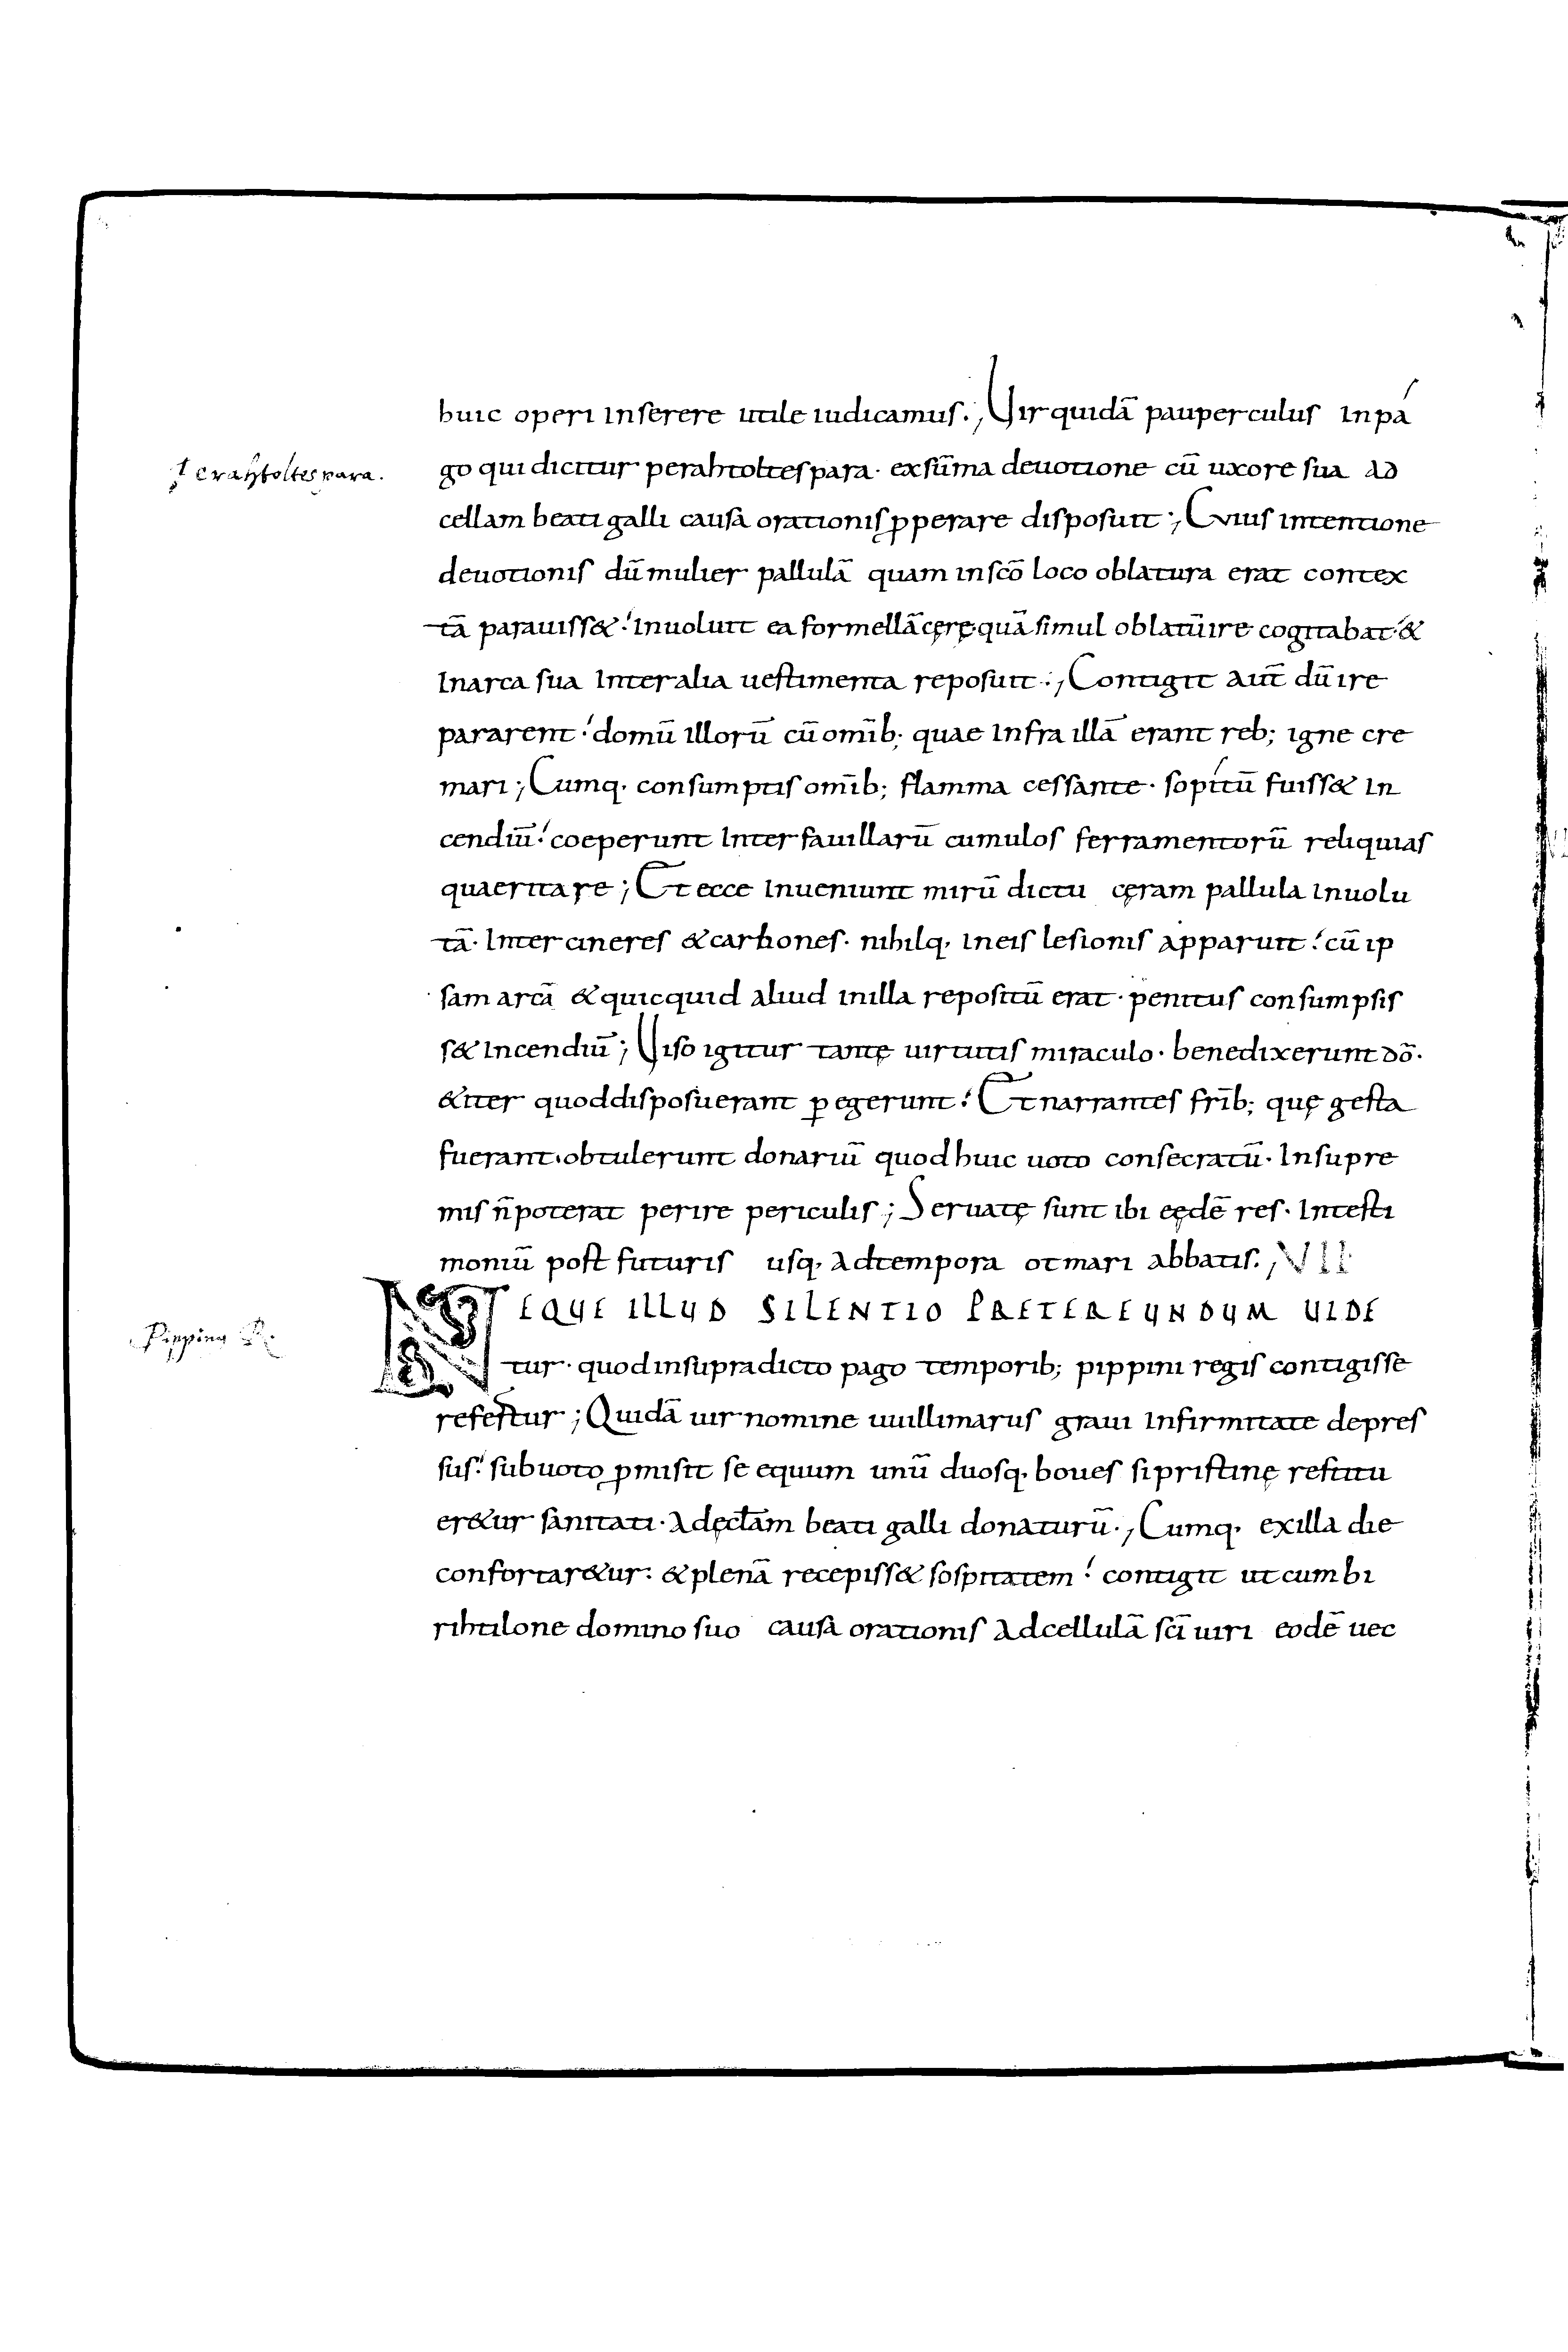 huic operi inserere utile iudicamus·; Uir quidã pauperculus in pá
perahtoltespara.
go qui dicitur perahtoltespara· ex sũma deuotione cũ uxore sua ad
cellam beati galli causa orationis ꝓperare disposuit·; Cuius intentione
deuotionis dũ mulier pallulã quam in scõ loco oblatura erat contex
tã parauiss&· inuoluit ea formellã cęrę· quã simul oblatũ ire cogitabat· &
in arca sua inter alia uestimenta reposuit·; Contigit aut̃ dũ ire
pararent· domũ illorũ cũ omĩb; quae infra illã erant reb; igne cre
mari; Cumq· consumptis omĩb; flamma cessante· sopitũ fuiss& in
cendiũ· coeperunt inter fauillarũ cumulos ferramentorũ reliquias
quaeritare; Et ecce inueniunt mirũ dictu cęram pallula inuolu
tã· inter cineres & carbones· nihilq· in eis lesionis apparuit· cũ ip
sam arcã & quicquid aliud in illa repositũ erat· penitus consumpsis
s& incendiũ; Uiso igitur tantę uirtutis miraculo· benedixerunt dõ·
& iter quod disposuerant ꝑegerunt· Et narrantes frĩb; quę gesta
fuerant· obtulerunt donariũ quod huic uoto consecratũ· in supre
mis ñ poterat perire periculis; Seruatę sunt ibi eędẽ res· in testi
moniũ post futuris usq· ad tempora otmari abbatis·; VII·
NEQUE ILLUD SILENTIO PRETEREUNDUM UIDE
Pippinq R.
tur· quod in supradicto pago temporib; pippini regis contigisse
refertur; Quidã uir nomine uuillimarus graui infirmitate depres
sus· sub uoto ꝓmisit se equum unũ duosq· boues si pristinę restitu
er&ur sanitati· ad ęcl̃am beati galli donaturũ·; Cumq· ex illa die
confortar&ur· & plenã recepiss& sospitatem· contigit ut cum bi
rihtilone domino suo causa orationis ad cellulã sc̃i uiri eodẽ uec